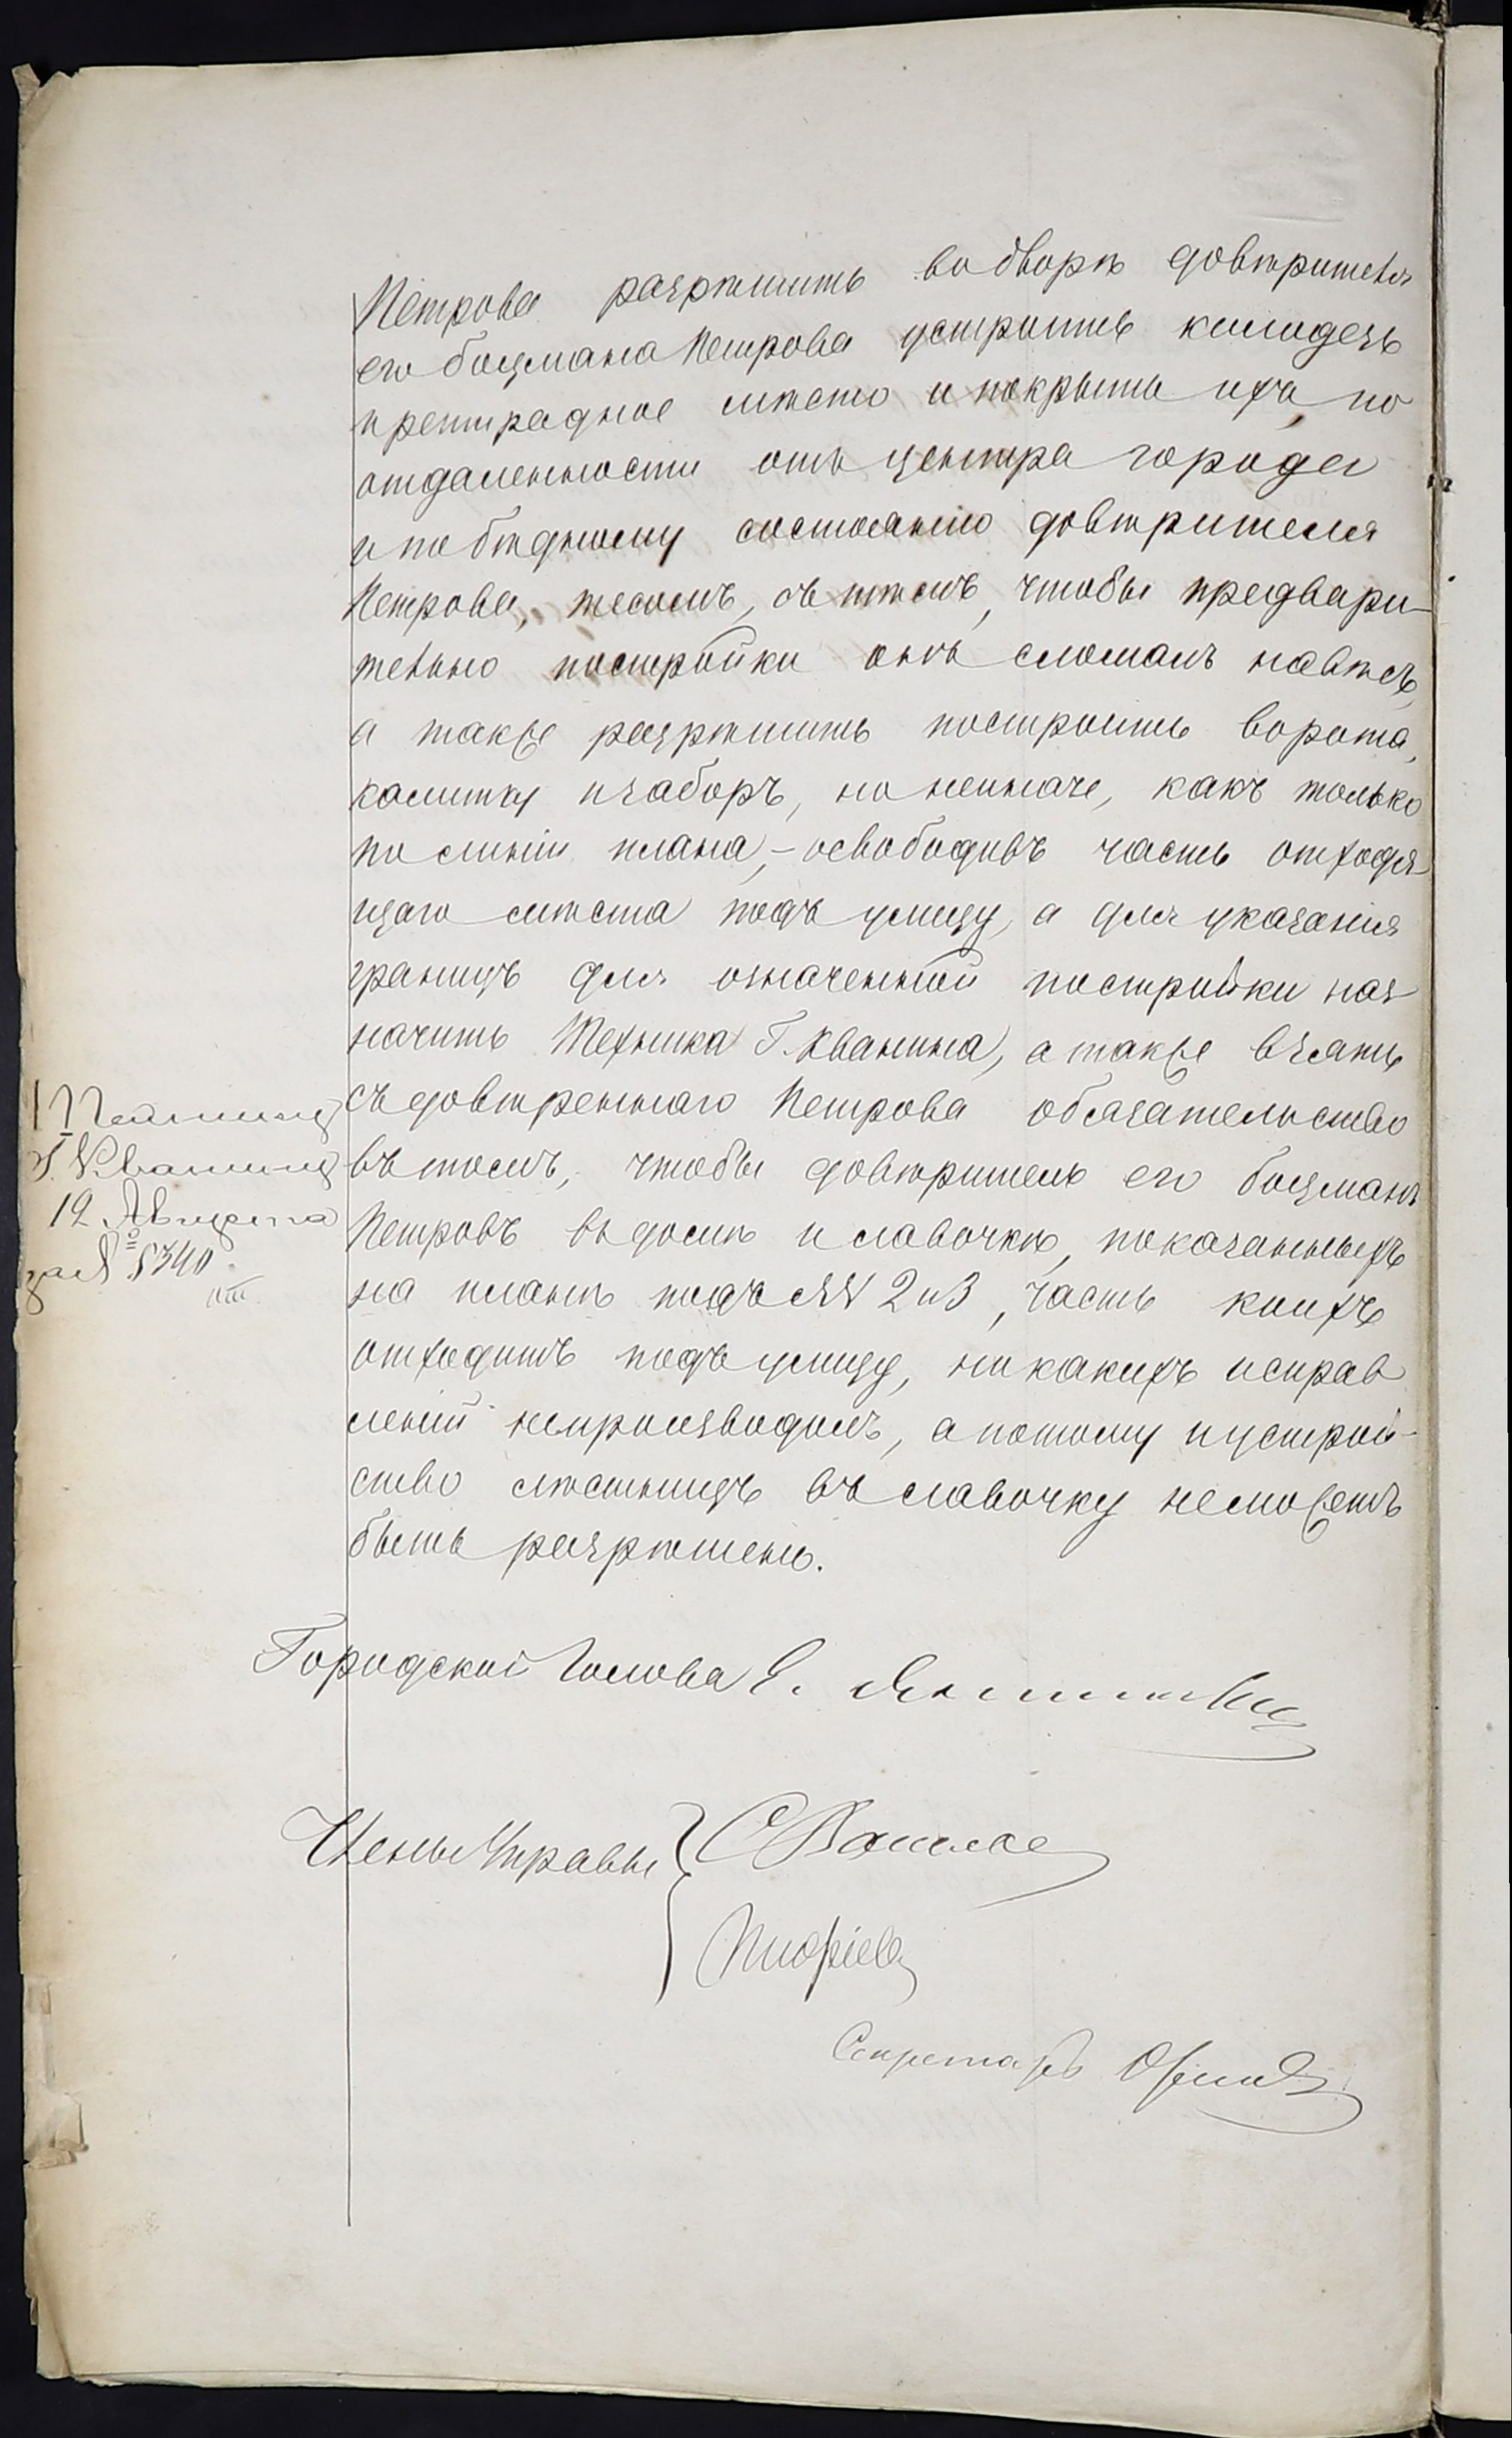 Петрова разрѣшить во дворѣ довѣрителя
его боцмана Петрова устроить колодезь
претирадное мѣсто и покрыть ихъ, по
отдаленности отъ центра города
и по бѣдному состоянію довѣрителя
Петрова, тесомъ, съ тѣмъ, чтобы предвари-
тельно постройки онъ сломалъ навѣсъ,
а также разрѣшить построить ворота,
калитку и заборъ, но не иначе, какъ только
по линіи плана, - освободивъ часть отходя
щаго мѣста подъ улицу, а для указанія
границъ для означенной постройки наз
начить Техника Г. Кванина, а также взять
съ довѣреннаго Петрова обязательство
въ томъ, чтобы довѣритель его боцманъ
Петровъ въ домѣ и лавочкѣ, показанныхъ
на планѣ подъ №№ 2 и 3, часть коихъ
отходитъ подъ улицу, никакихъ исправ
леній не производилъ, а потому и устрой-
ство лѣстницъ въ лавочку не можетъ
быть разрѣшено.
Технику
Г. Кванину
12 Августа
за № 5340
Городской Голова Е.
Члены Управы
Секретарь